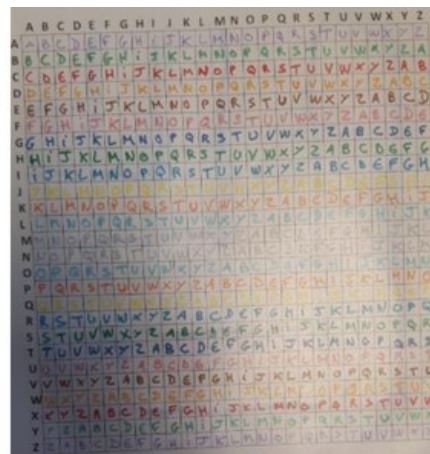 A B C D E F G H I J K L M N O P Q R S T U V W X Y Z
A A B C D E F G H I J K L M N O P Q R S T U V W X Y Z
B B C D E F G H i J K L M N O P Q R S T U V W X Y Z A
C C D E F G H i J K L M N O P Q R S T U V W X Y Z A B
D D E F G H i J K L M N O P Q R S T U V W X Y Z A B C
E E F G H i J K L M N O P Q R S T U V W X Y Z A B C D
F F G H i J K L M N O P Q R S T U V W X Y Z A B C D E
G G H i J K L M N O P Q R S T U V W X Y Z A B C D E F
H H i J K L M N O P Q R S T U V W X Y Z A B C D E F G
I i J K L M N O P Q R S T U V W X Y Z A B C D E F G H
J
K K L M N O P Q R S T U V W X Y Z A B C D E F G H i J
L L M N O P Q R S T U V W X Y Z A B C D E F G H i J K
M M N O P Q R S T U V W X Y Z
N N O P Q R S T U V W X Y Z
O O P Q R S T U V W X Y Z A B C D E F G H I J K L M N
P P Q R S T U V W X Y Z A B C D E F G H I J K L M N O
Q
R R S T U V W X Y Z A B C D E F G H i J K L M N O P Q
S S T U V W X Y Z A B C D E F G H J K L M N O P Q R
T T U V W X Y Z A B C D E F G H i J K L M N O P Q R S
U U V W X Y Z A B C D E F G H i J K L M N O P Q R S T
V V W X Y Z A B C D E F G H i J K L M N O P Q R S T U
W W X Y Z A B C D E F G H i J K L M N O P Q R S T U V
X X Y Z A B C D E F G H i J K L M N O P Q R S T U V W
Y Y Z A B C D E F G H i J K L M N O P Q R S T U V W X
Z Z A B C D E F G H i J K L M N O P Q R S T U V W X Y